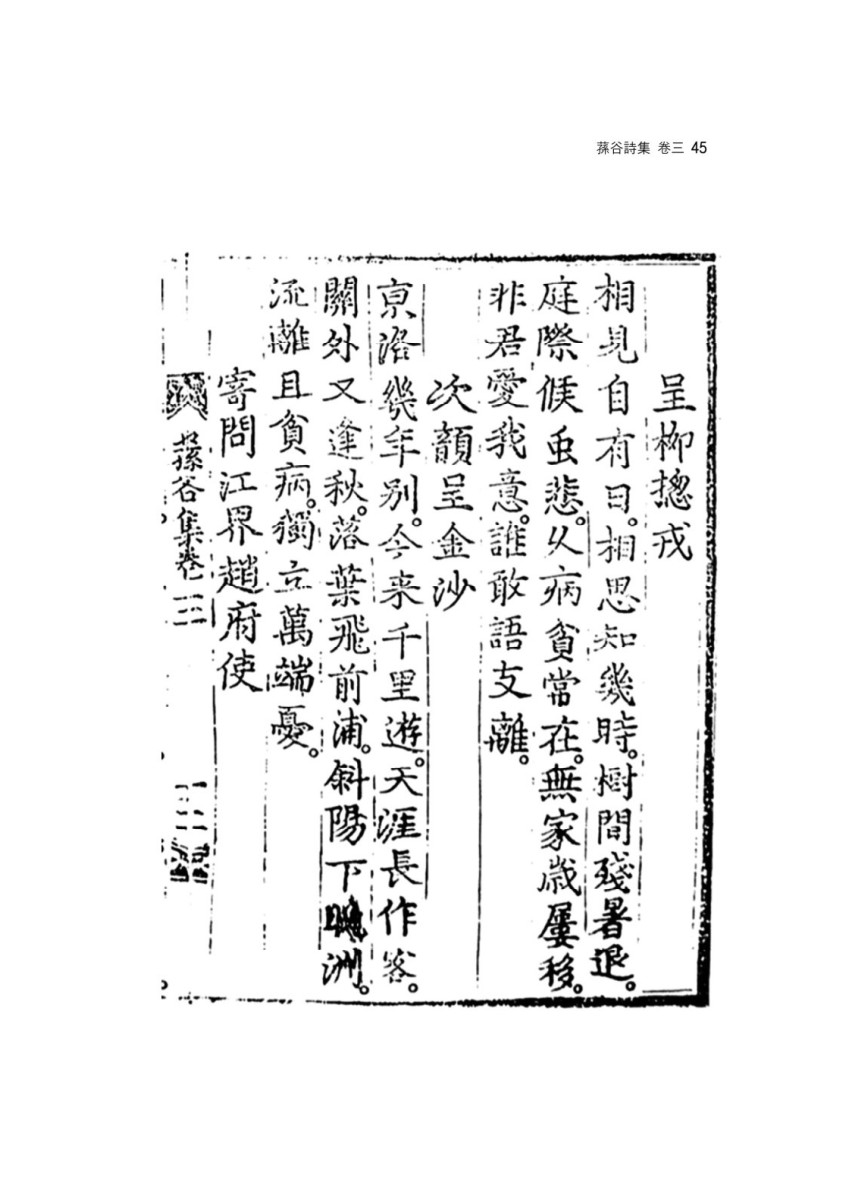 蓀谷詩集 卷三 45
呈柳摠戎
相見自有日。相思知幾時。樹間殘暑退。
庭際候虫悲。久病貧常在。無家歲屢移。
非君愛我意。誰敢語支離。
次韻呈金沙
京洛幾年別。今来千里遊。天涯長作客。
關外又逢秋。落葉飛前浦。斜陽下晚洲。
流離且貧病。獨立萬端憂。
寄問江界趙府使
蓀谷集卷三